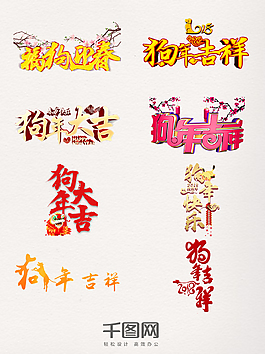 福狗迎春
狗年吉祥
狗年大吉
狗年吉祥
狗年大吉
狗年快乐
狗年吉祥
狗年吉祥
2018
千图网
轻松设计 高效办公